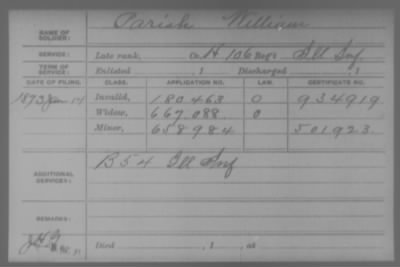 NAME OF SOLDIER: Parish William
SERVICE: Late rank, Co. H 106 Reg't Ill Inf.
TERM OF SERVICE: Enlisted , 1 Discharged , 1
DATE OF FILING. CLASS. APPLICATION NO. LAW. CERTIFICATE NO.
1873 Jan 14 Invalid, 180463 0 934919
Widow, 667.088 0
Minor, 658984 501923
ADDITIONAL SERVICES: B 54 Ill Inf
REMARKS:
Died , 1 , at